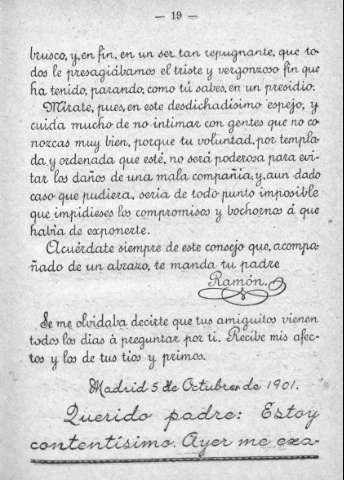 — 19 —
brusco, y, en fin, en un ser tan repugnante, que to-
dos le presagiábamos el triste y vergonzoso fin que
ha tenido, parando, como tú sabes, en un presidio.
Mírate, pues, en este desdichadísimo espejo, y
cuida mucho de no intimar con gentes que no co-
nozcas muy bien, porque tu voluntad, por templa-
da y ordenada que esté, no será poderosa para evi-
tar los daños de una mala compañía, y, aun dado
caso que pudiera, sería de todo punto imposible
que impidieses los compromisos y bochornos á que
había de exponerte.
Acuérdate siempre de este consejo que, acompa-
ñado de un abrazo, te manda tu padre
Ramón.
Se me olvidaba decirte que tus amiguitos vienen
todos los días á preguntar por ti. Recibe mis afec-
tos y los de tus tíos y primos.
Madrid 5 de Octubre de 1901.
Querido padre: Estoy
contentísimo. Ayer me exa-